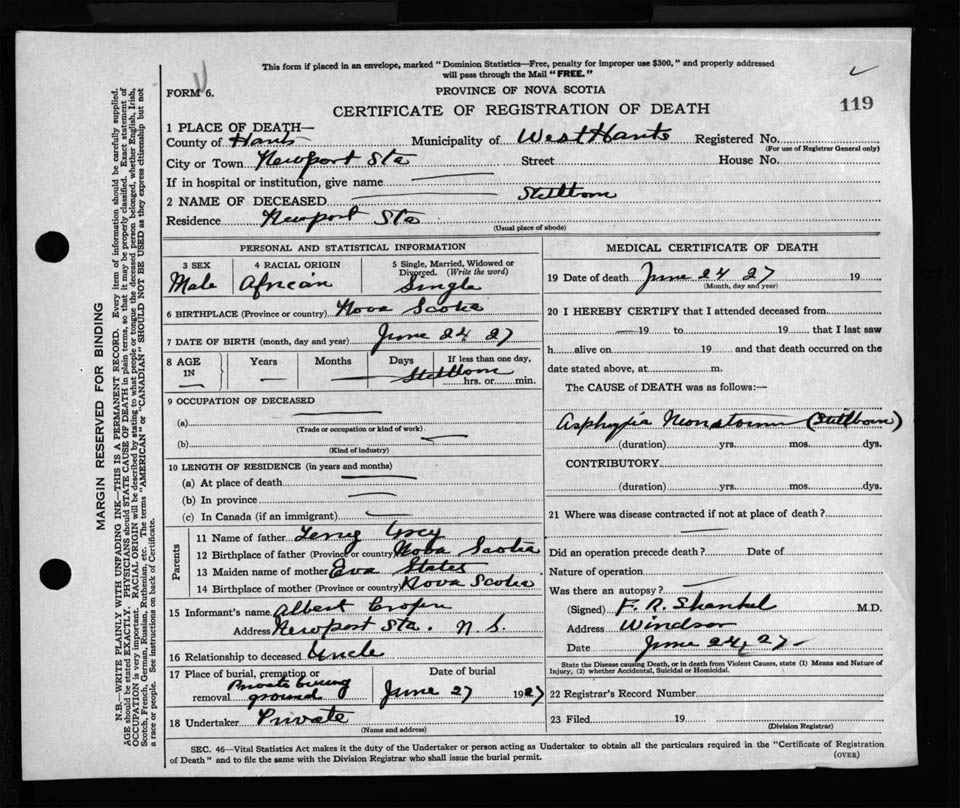 This form if placed in an envelope, marked "Dominion Statistics—Free, penalty for improper use $300," and properly addressed
will pass through the Mail "FREE."
FORM 6.
PROVINCE OF NOVA SCOTIA
CERTIFICATE OF REGISTRATION OF DEATH
119
1 PLACE OF DEATH—
County of Hants Municipality of West Hants Registered No.
(For use of Registrar General only)
City or Town Newport Sta Street House No.
If in hospital or institution, give name
2 NAME OF DECEASED Stillborn
Residence Newport Sta
(Usual place of abode)
PERSONAL AND STATISTICAL INFORMATION
3 SEX 4 RACIAL ORIGIN 5 Single, Married, Widowed or
Divorced. (Write the word)
Male African Single
6 BIRTHPLACE (Province or country) Nova Scotia
7 DATE OF BIRTH (month, day and year) June 24 27
8 AGE Years Months Days If less than one day,
IN Stillborn
hrs. or min.
9 OCCUPATION OF DECEASED
(a)
(Trade or occupation or kind of work)
(b)
(Kind of industry)
10 LENGTH OF RESIDENCE (in years and months)
(a) At place of death
(b) In province
(c) In Canada (if an immigrant)
Parents
11 Name of father Grey
12 Birthplace of father (Province or country) Nova Scotia
13 Maiden name of mother Eva States
14 Birthplace of mother (Province or country) Nova Scotia
15 Informant's name Albert
Address Newport Sta. N S.
16 Relationship to deceased Uncle
17 Place of burial, cremation or Date of burial
removal Private burying
ground June 27 1927
18 Undertaker Private
(Name and address)
MEDICAL CERTIFICATE OF DEATH
19 Date of death June 24 27 19
(Month, day and year)
20 I HEREBY CERTIFY that I attended deceased from
19 to 19 that I last saw
h alive on 19 and that death occurred on the
date stated above, at m.
The CAUSE of DEATH was as follows:—
Asphyxia (Stillborn)
(duration) yrs. mos. dys.
CONTRIBUTORY
(duration) yrs. mos. dys.
21 Where was disease contracted if not at place of death?
Did an operation precede death? Date of
Nature of operation
Was there an autopsy?
(Signed) F. R. Shankel M.D.
Address Windsor
Date June 24, 27
State the Disease causing Death, or in death from Violent Causes, state (1) Means and Nature of
Injury, (2) whether Accidental, Suicidal or Homicidal.
22 Registrar's Record Number
23 Filed 19
(Division Registrar)
SEC. 46—Vital Statistics Act makes it the duty of the Undertaker or person acting as Undertaker to obtain all the particulars required in the "Certificate of Registration
of Death" and to file the same with the Division Registrar who shall issue the burial permit.
(OVER)
MARGIN RESERVED FOR BINDING
N.B.—WRITE PLAINLY, WITH UNFADING INK—THIS IS A PERMANENT RECORD. Every item of information should be carefully supplied.
AGE should be stated EXACTLY. PHYSICIANS should STATE CAUSE OF DEATH in plain terms, so that it may be properly classified. Exact statement of
OCCUPATION is very important. RACIAL ORIGIN will be described by stating to what people or tongue the deceased person belonged, whether English, Irish,
Scotch, French, German, Russian, Ruthenian, etc. The terms "AMERICAN" or "CANADIAN" SHOULD NOT BE USED as they express citizenship but not
a race or people. See instructions on back of Certificate.